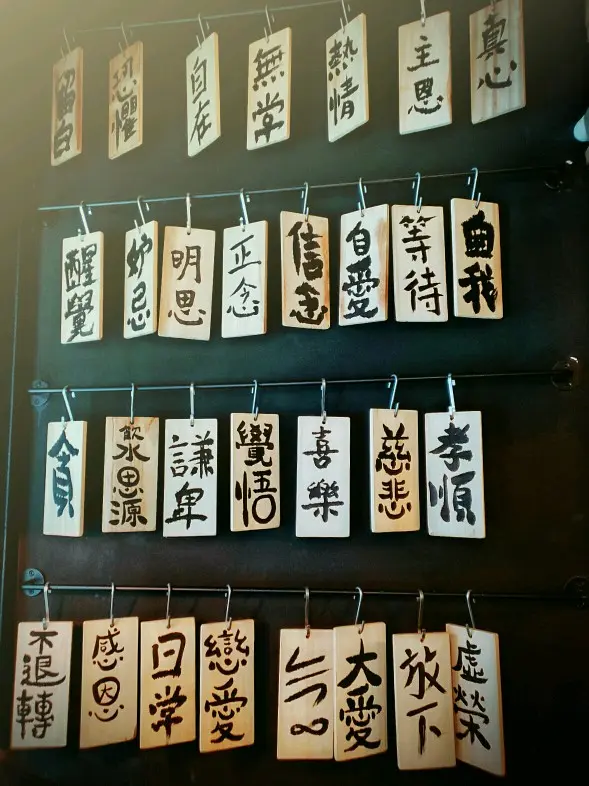 留白
恐懼
自在
無常
熱情
主恩
真心
醒覺
妒忌
明思
正念
信念
自愛
等待
自我
貪
飲水思源
謙卑
覺悟
喜樂
慈悲
孝順
不退轉
感恩
日常
戀愛
大愛
放下
虛榮